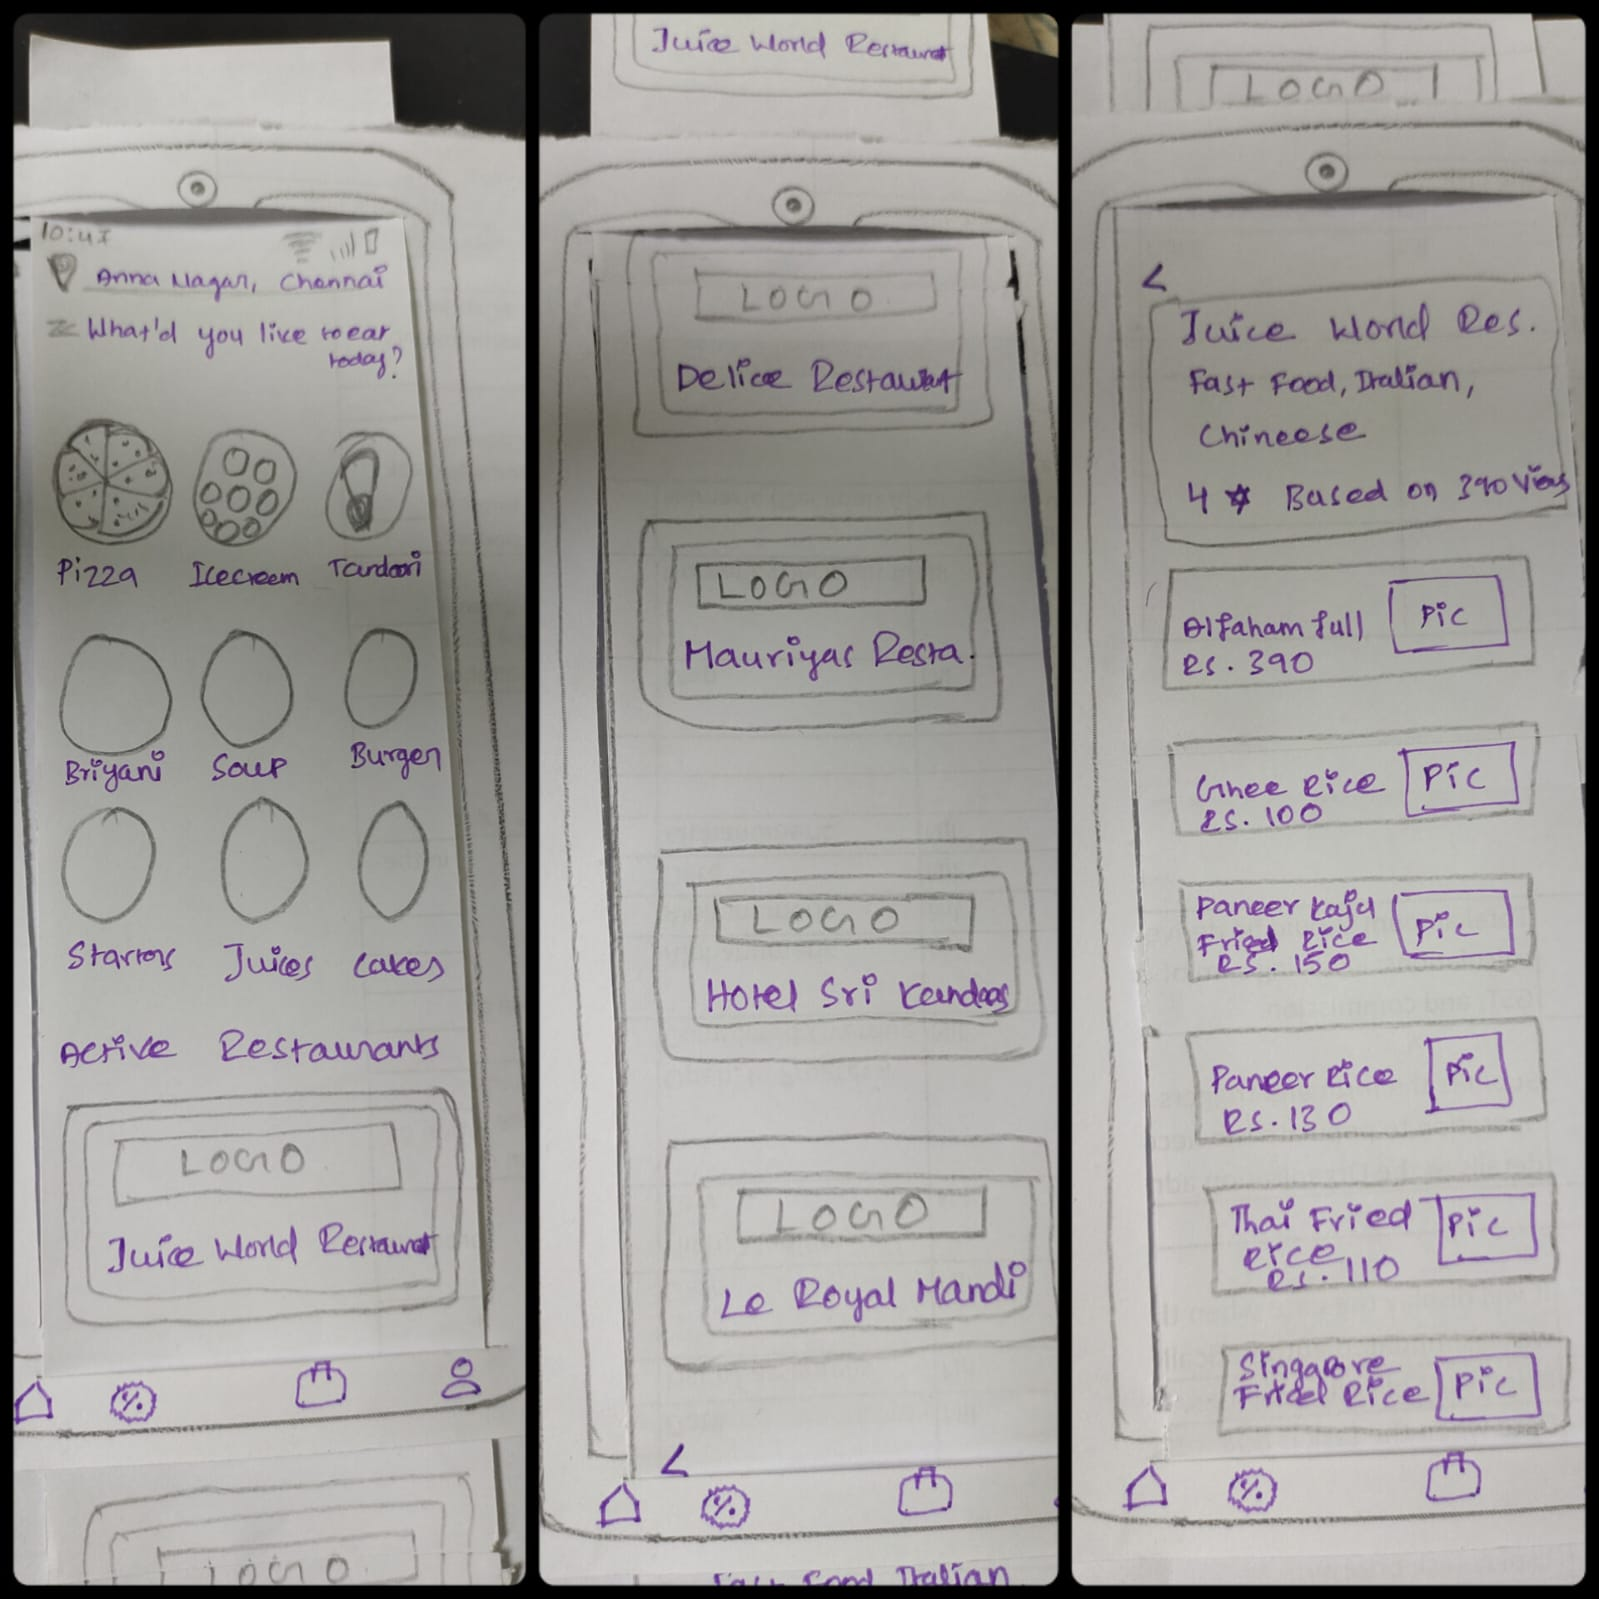 10:47
Anna Nagar, Chennai
What'd you like to eat
today?
Pizza Icecreem Tandoori
Briyani Soup Burger
Starters Juices Cakes
Active Restaurants
LOGO
Juice World Restaurat
LOGO
Juice World Restaurat
LOGO
Delice Restaurat
LOGO
Mauriyas Resta.
LOGO
Hotel Sri
LOGO
Le Royal Mandi
<
%
Fast Food Italian
LOGO
<
Juice World Res.
Fast Food, Italian,
Chineese
4 ☆ Based on 390 Views
Alfaham full Pic
Rs. 390
Ghee Rice Pic
Rs. 100
Paneer Kaju Pic
Fried Rice
Rs. 150
Paneer Rice Pic
Rs. 130
Thai Fried Pic
Rice
Rs. 110
Singapore Pic
Fried Rice
%